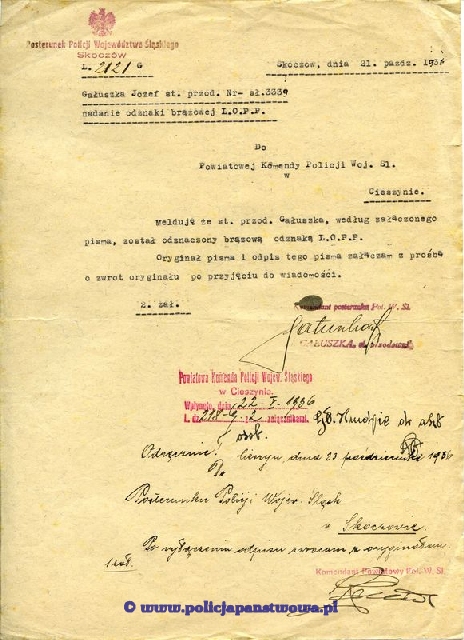 Posterunek Policji Województwa Śląskiego
SKOCZÓW
L. 2121 G
Skoczów, dnia 21. paźdz. 1936
Gałuszka Józef st. przod. Nr- sł.3339
nadanie odznaki brązowej L.O.P.P.
Do
Powiatowej Komendy Policji Woj. Sl.
w
Cieszynie.
Melduję że st. przod. Gałuszka, według załączonego
pisma, został odznaczony brązową odznaką L.O.P.P.
Oryginał pisma i odpis tego pisma załączam z prośbą
o zwrot oryginału po przyjęciu do wiadomości.
2. zał.
Komendant posterunku Pol. W. Sl.
GAŁUSZKA, st. przodown.
Powiatowa Komenda Policji Wojew. Śląskiego
w Cieszynie.
Wpłynęło, dnia 22. X. 1936
L. dz. załączników.
Odręcznie!
Cieszyn, dnia 23 października 1936
Do
Posterunku Policji Wojew. Śląsk
w Skoczowie
Po wyłączeniu odpisu zwracam z oryginałem
1 zał.
Komendant Powiatowy Pol. W. Sl.
© www.policjapanstwowa.pl